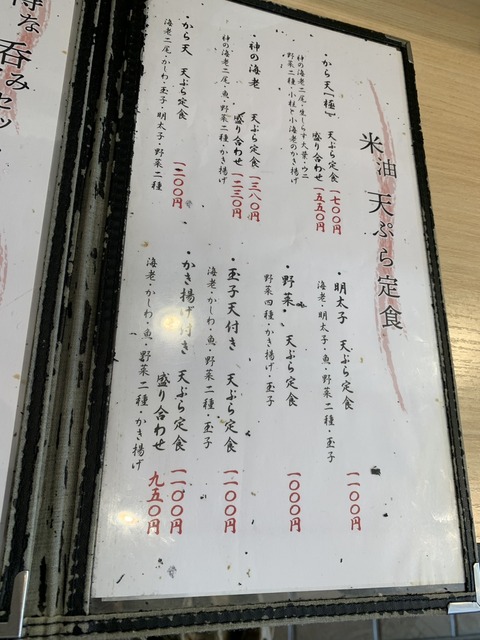 米油 天ぷら定食
・から天「極」 天ぷら定食 一七〇〇円
盛り合わせ 一五五〇円
神の海老二尾・生しらす大葉・ウニ
野菜二種・小柱と小海老のかき揚げ
・神の海老 天ぷら定食 一三八〇円
盛り合わせ 一二三〇円
神の海老二尾・魚・野菜二種・かき揚げ
・から天 天ぷら定食 一二〇〇円
海老二尾・かしわ・玉子・明太子・野菜二種
・明太子 天ぷら定食 一一〇〇円
海老・明太子・魚・野菜二種・玉子
・野菜 天ぷら定食 一〇〇〇円
野菜四種・かき揚げ・玉子
・玉子天付き 天ぷら定食 一一〇〇円
海老・かしわ・魚・野菜二種・玉子
・かき揚げ付き 天ぷら定食 一一〇〇円
盛り合わせ 九五〇円
海老・かしわ・魚・野菜二種・かき揚げ
な呑みセッ